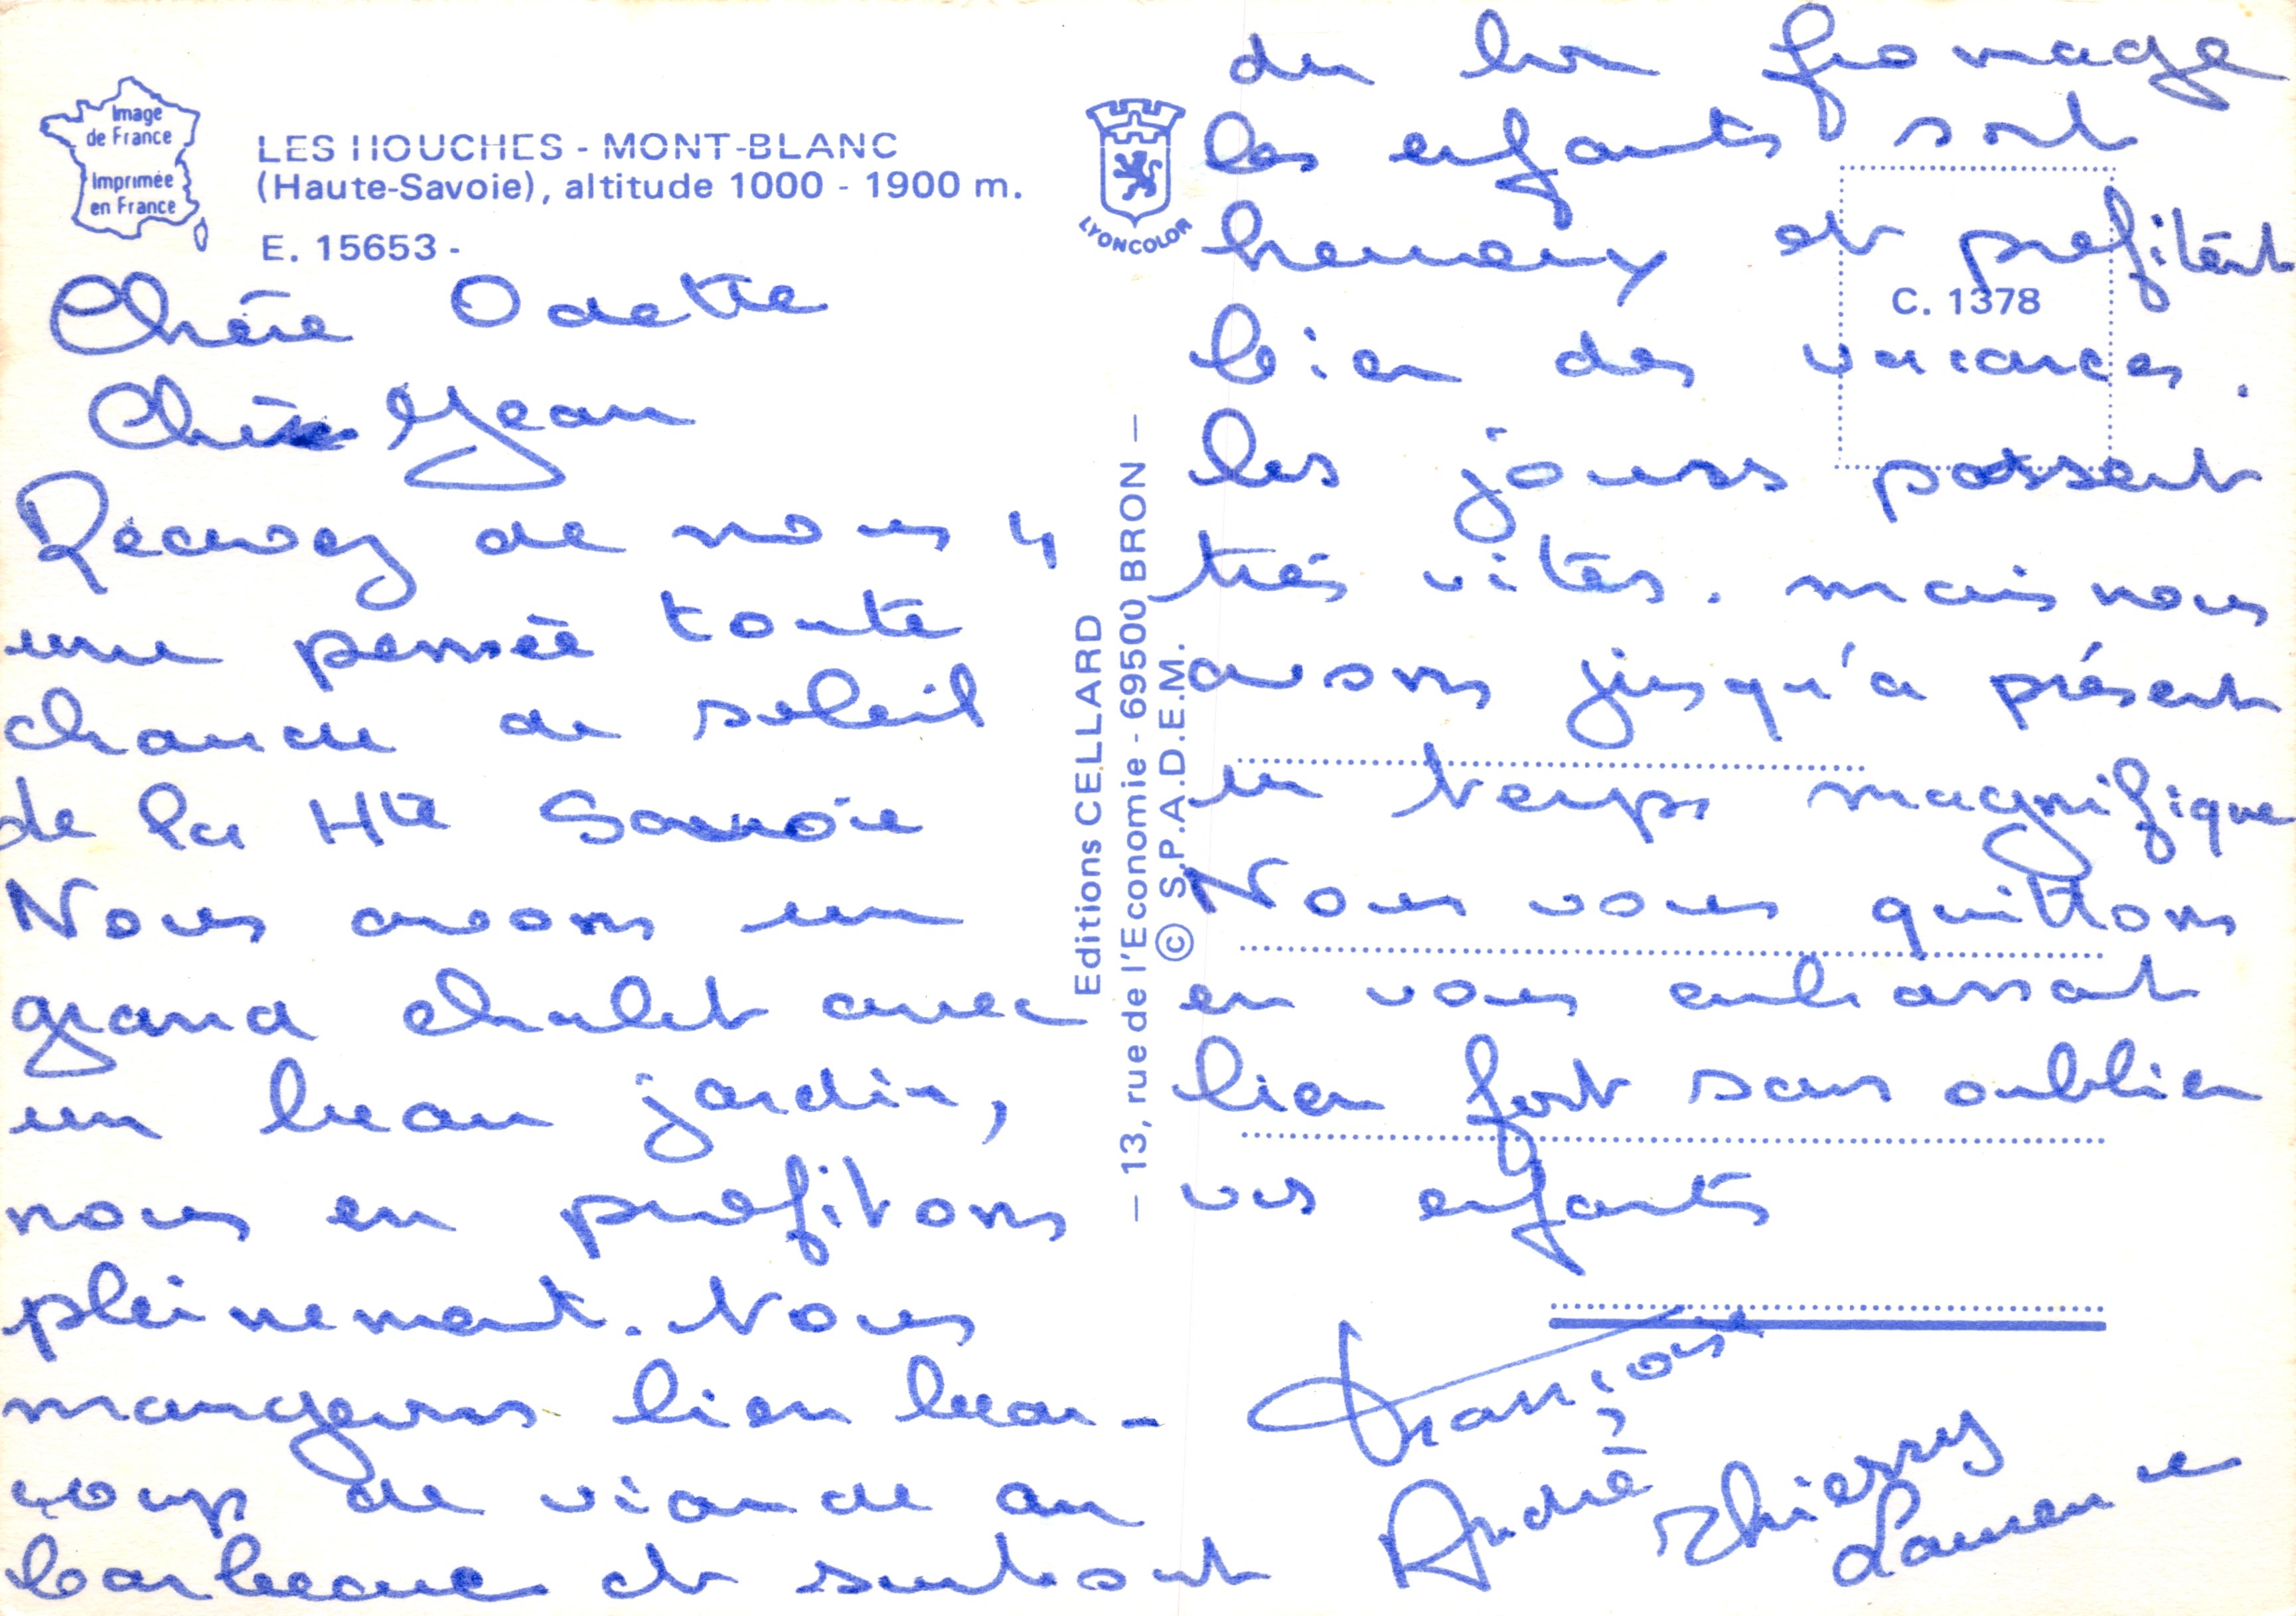 Image
de France
Imprimée
en France
LES HOUCHES - MONT-BLANC
(Haute-Savoie), altitude 1000 - 1900 m.
E. 15653 -
LYONCOLOR
C. 1378
Editions CELLARD
— 13, rue de l'Economie - 69500 BRON —
© S.P.A.D.E.M.
Chère Odette
Cher Jean
Recevez de nous 4
une pensée toute
chaude de soleil
de la Hte Savoie
Nous avons un
grand chalet avec
un beau jardin,
nous en profitons
pleinement. Nous
mangeons bien beau-
coup de viande au
barbecue et surtout
du bon fromage
les enfants sont
heureux et profitent
bien des vacances.
les jours passent
très vites. mais nous
avons jusqu'à présent
un temps magnifique
Nous vous quittons
en vous embrassant
bien fort sans oublier
vos enfants
Françoise
André Thierry
Laurence